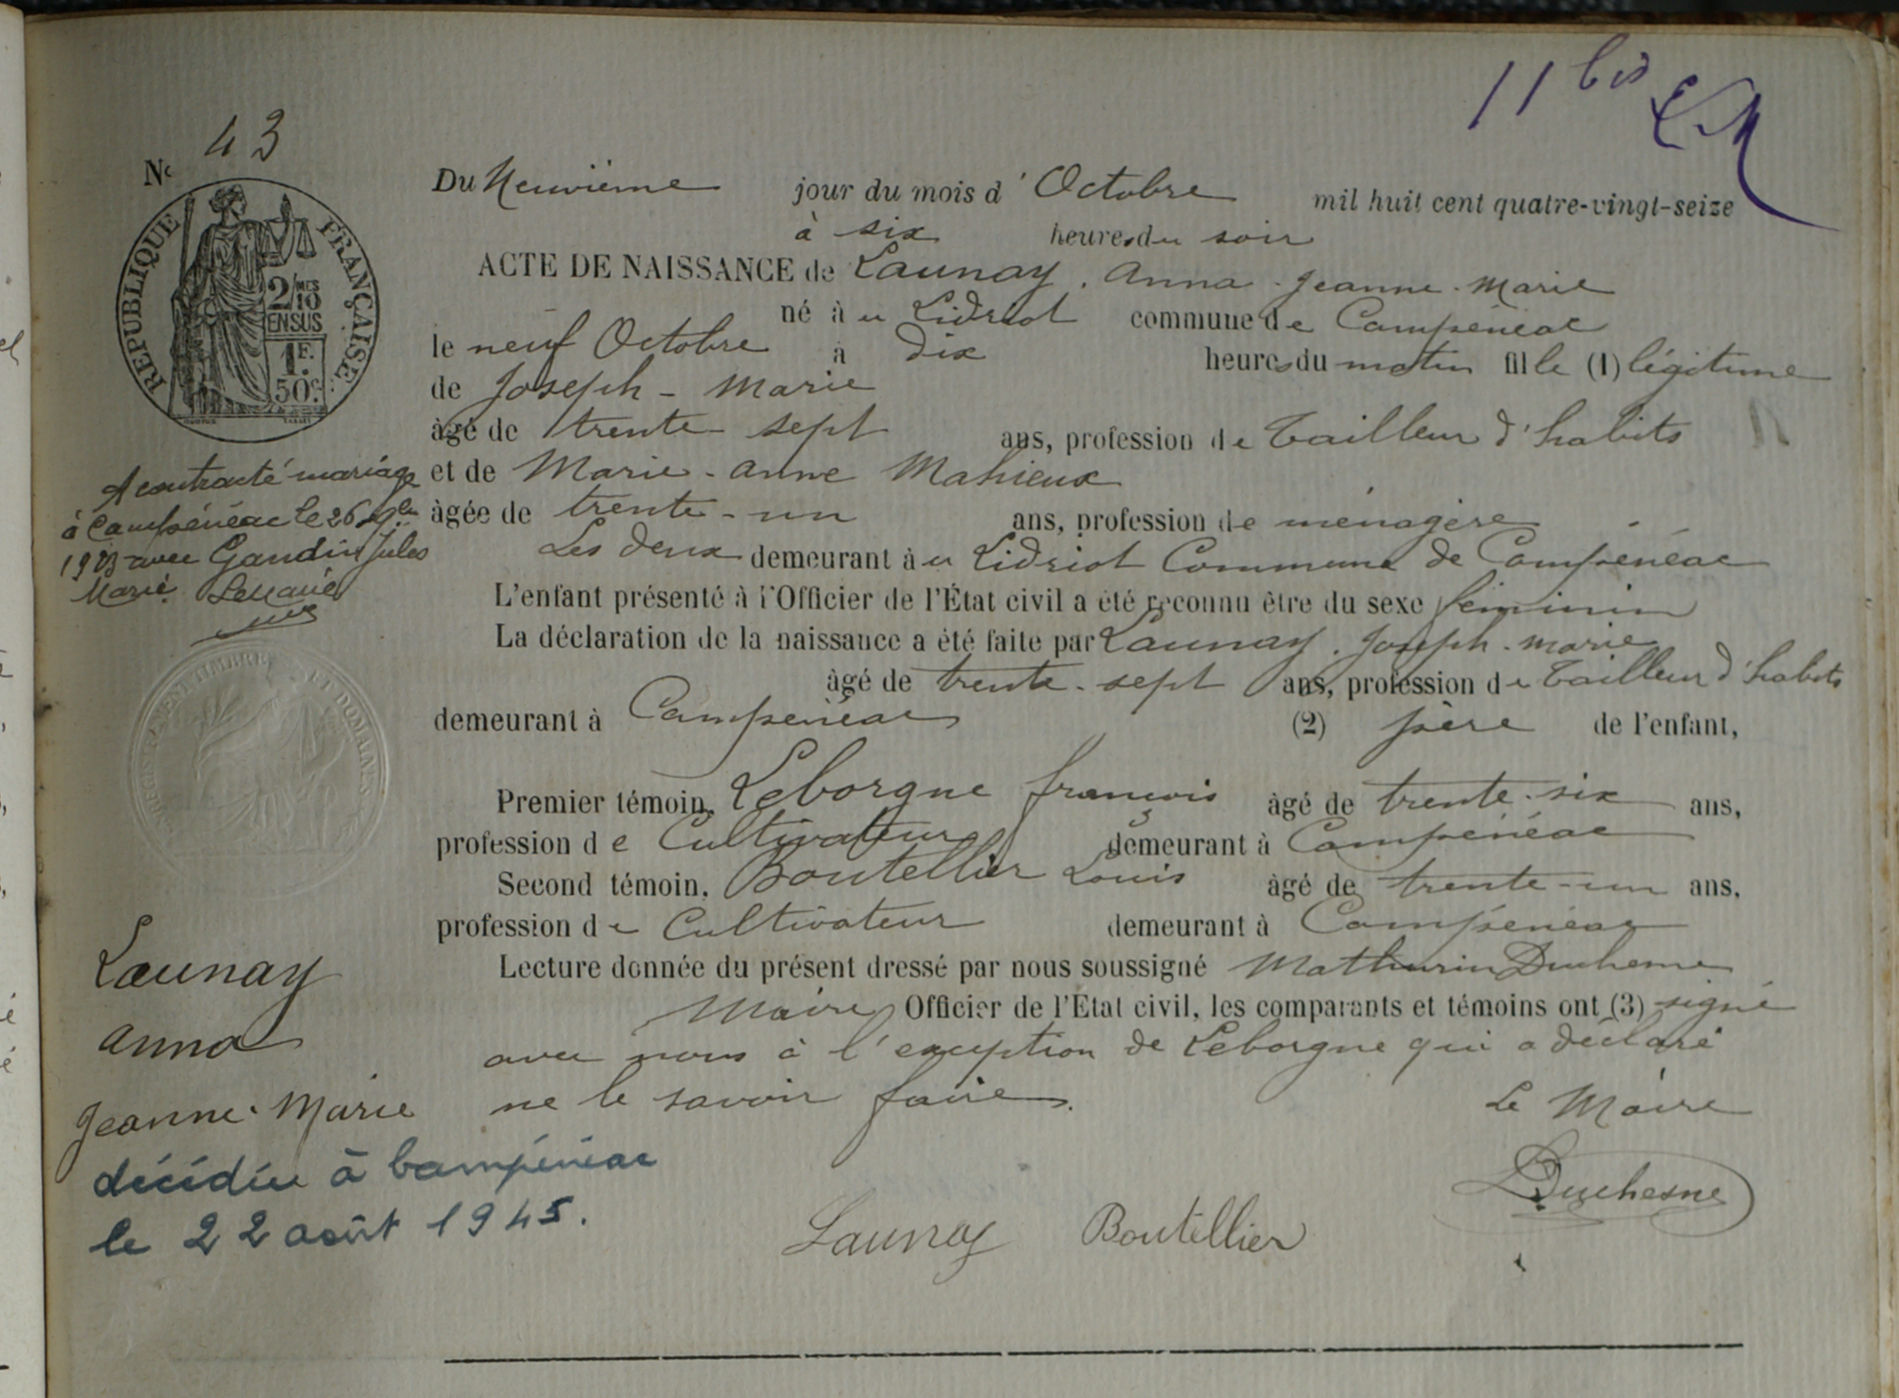 11 bis
Nº 43
RÉPUBLIQUE FRANÇAISE
2/10 MES
EN SUS
1F.
50c.
Du Neuvième jour du mois d'Octobre mil huit cent quatre-vingt-seize
à six heures du soir
ACTE DE NAISSANCE de Launay, Anna-Jeanne-Marie
né à u Lidriot commune de Campénéac
le neuf Octobre à dix heures du matin fille (1) légitime
de Joseph-Marie
âgé de trente sept ans, profession de tailleur d'habits
et de Marie-Anne Mahieux
âgée de trente-un ans, profession de ménagère
Les deux demeurant à u Lidriot Commune de Campénéac
L'enfant présenté à l'Officier de l'État civil a été reconnu être du sexe féminin
La déclaration de la naissance a été faite par Launay, Joseph-Marie
âgé de trente-sept ans, profession de tailleur d'habits
demeurant à Campénéac (2) père de l'enfant,
Premier témoin, Leborgne françois âgé de trente-six ans,
profession de Cultivateur demeurant à Campénéac
Second témoin, Boutellier Louis âgé de trente-un ans,
profession de Cultivateur demeurant à Campénéac
Lecture donnée du présent dressé par nous soussigné Mathurin Duchesne
Maire Officier de l'État civil, les comparants et témoins ont (3) signé
avec nous à l'exception de Leborgne qui a déclaré
ne le savoir faire.
Le Maire
Duchesne
Launay Boutellier
A contracté mariage
à Campénéac le 26
avec Gaudin Jules
Marie.
ENREGISTREMENT TIMBRE ET DOMAINES
Launay
Anna
Jeanne-Marie
décédée à Campénéac
le 22 août 1945.